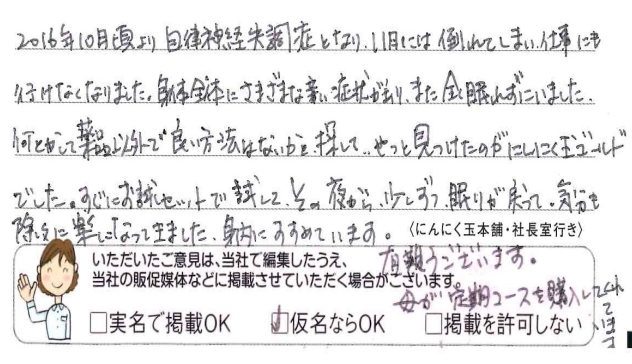 2016年10月頃より自律神経失調症となり、11月には倒れてしまい、仕事にも
行けなくなりました。身体全体にさまざまな辛い症状があり、また全く眠れずにいました。
何とかして薬品以外で良い方法はないかと探して、やっと見つけたのがにんにく玉ゴールド
でした。すぐにお試しセットで試して、その夜から、少しずつ眠りが戻って、気分も
除々に楽になって来ました。身内にすすめています。
〈にんにく玉本舗・社長室行き〉
有難うございます。
母が定期コースを購入してくれています
いただいたご意見は、当社で編集したうえ、
当社の販促媒体などに掲載させていただく場合がございます。
□実名で掲載OK ☑仮名ならOK □掲載を許可しない